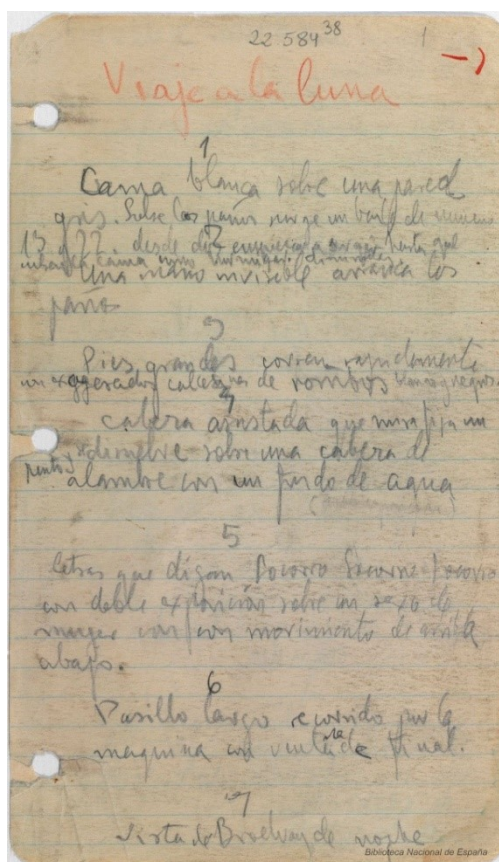 22 584 38
1
Viaje a la luna
1
Cama blanca sobre una pared
gris. Sobre los paños surge un baile de numeros
13 y 22. desde dos empiezan a surgir hasta que
cubren la cama como hormigas diminutas.
2
Una mano invisible arranca los
paños
3
Pies grandes corren rapidamente
con exagerados calcetines de rombos blancos y negros
4
Cabeza asustada que mira fija un
punto y se disuelve sobre una cabeza de
alambre con un fondo de agua
5
letras que digan Socorro Socorro Socorro
con doble exposición sobre un sexo de
muger con movimiento de arriba
abajo.
6
Pasillo largo recorrido por la
maquina con ventana de final.
7
Vista de Broadway de noche
Biblioteca Nacional de España